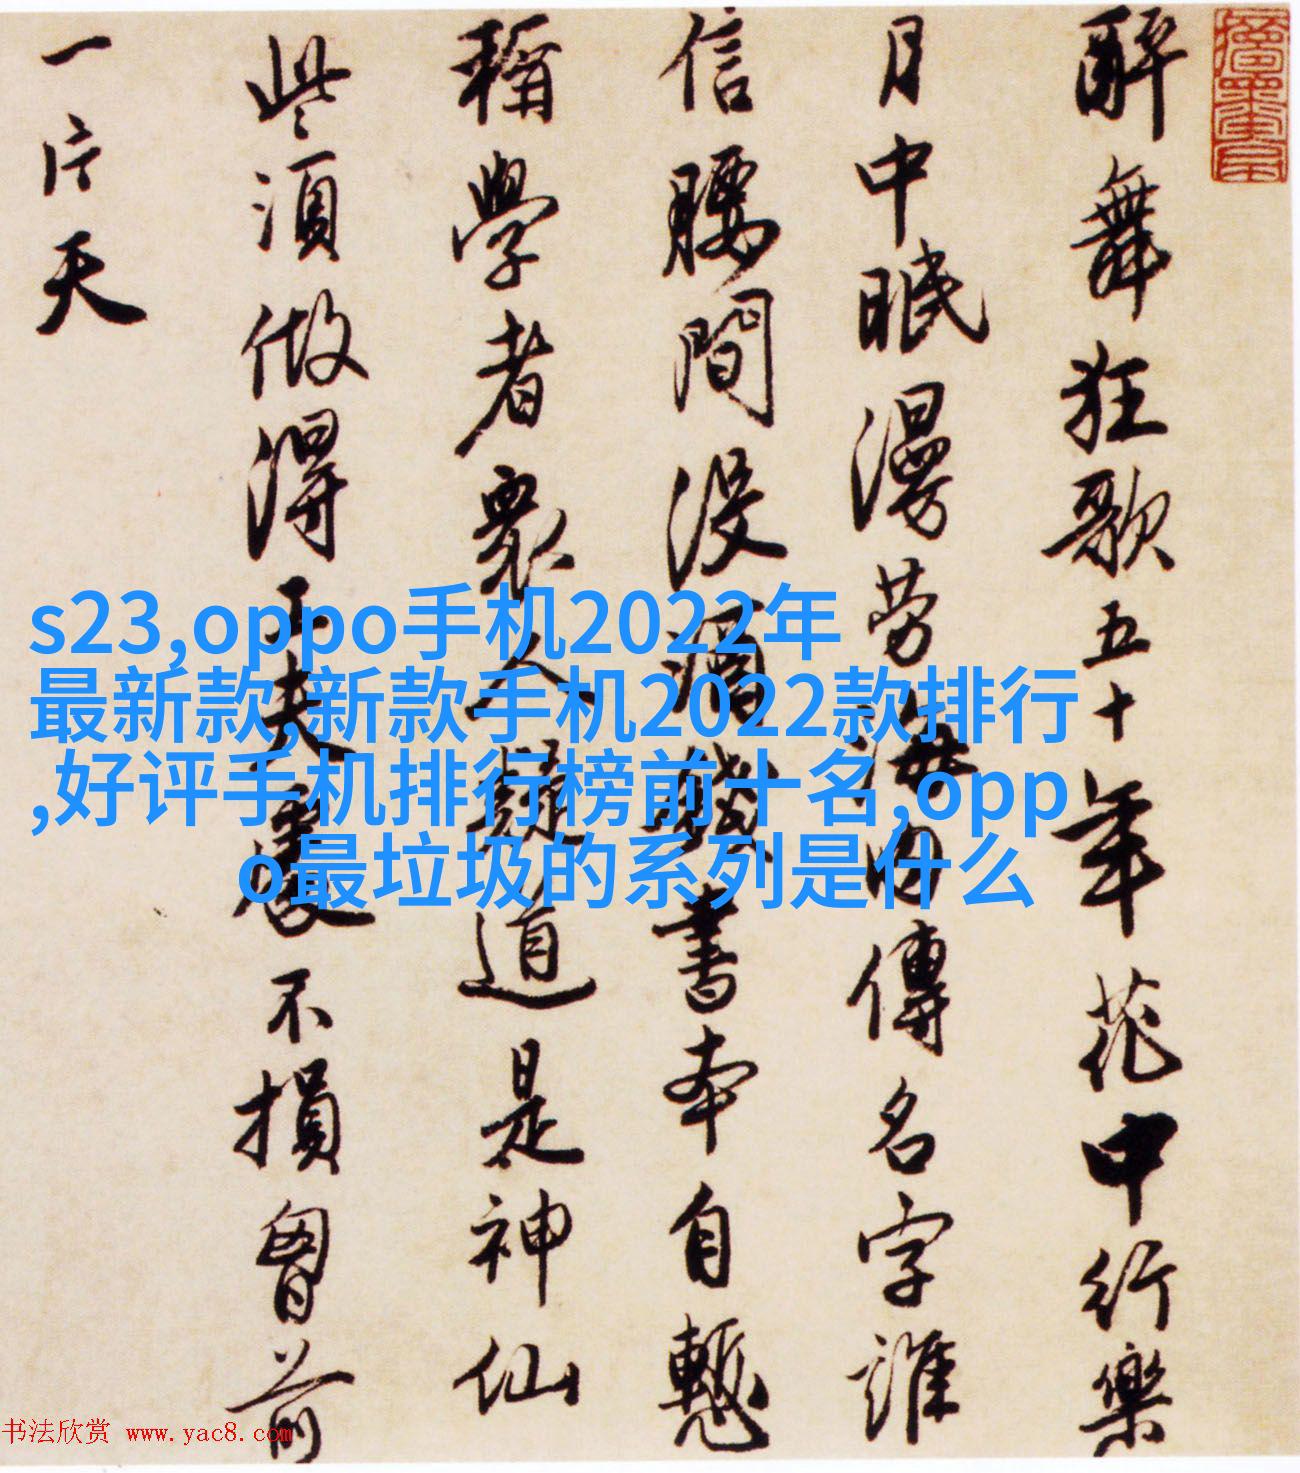 醉舞狂歌五十年花中行樂
月中眠漫劳海内傳名字誰
信腰間沒酒錢書本自慙
稱學者眾人疑道是神仙
些須做得工夫處不損胷前
一片天
s23,oppo手机2022年
最新款,新款手机2022款排行
,好评手机排行榜前十名,opp
o最垃圾的系列是什么
书法欣赏 www.yac8.com